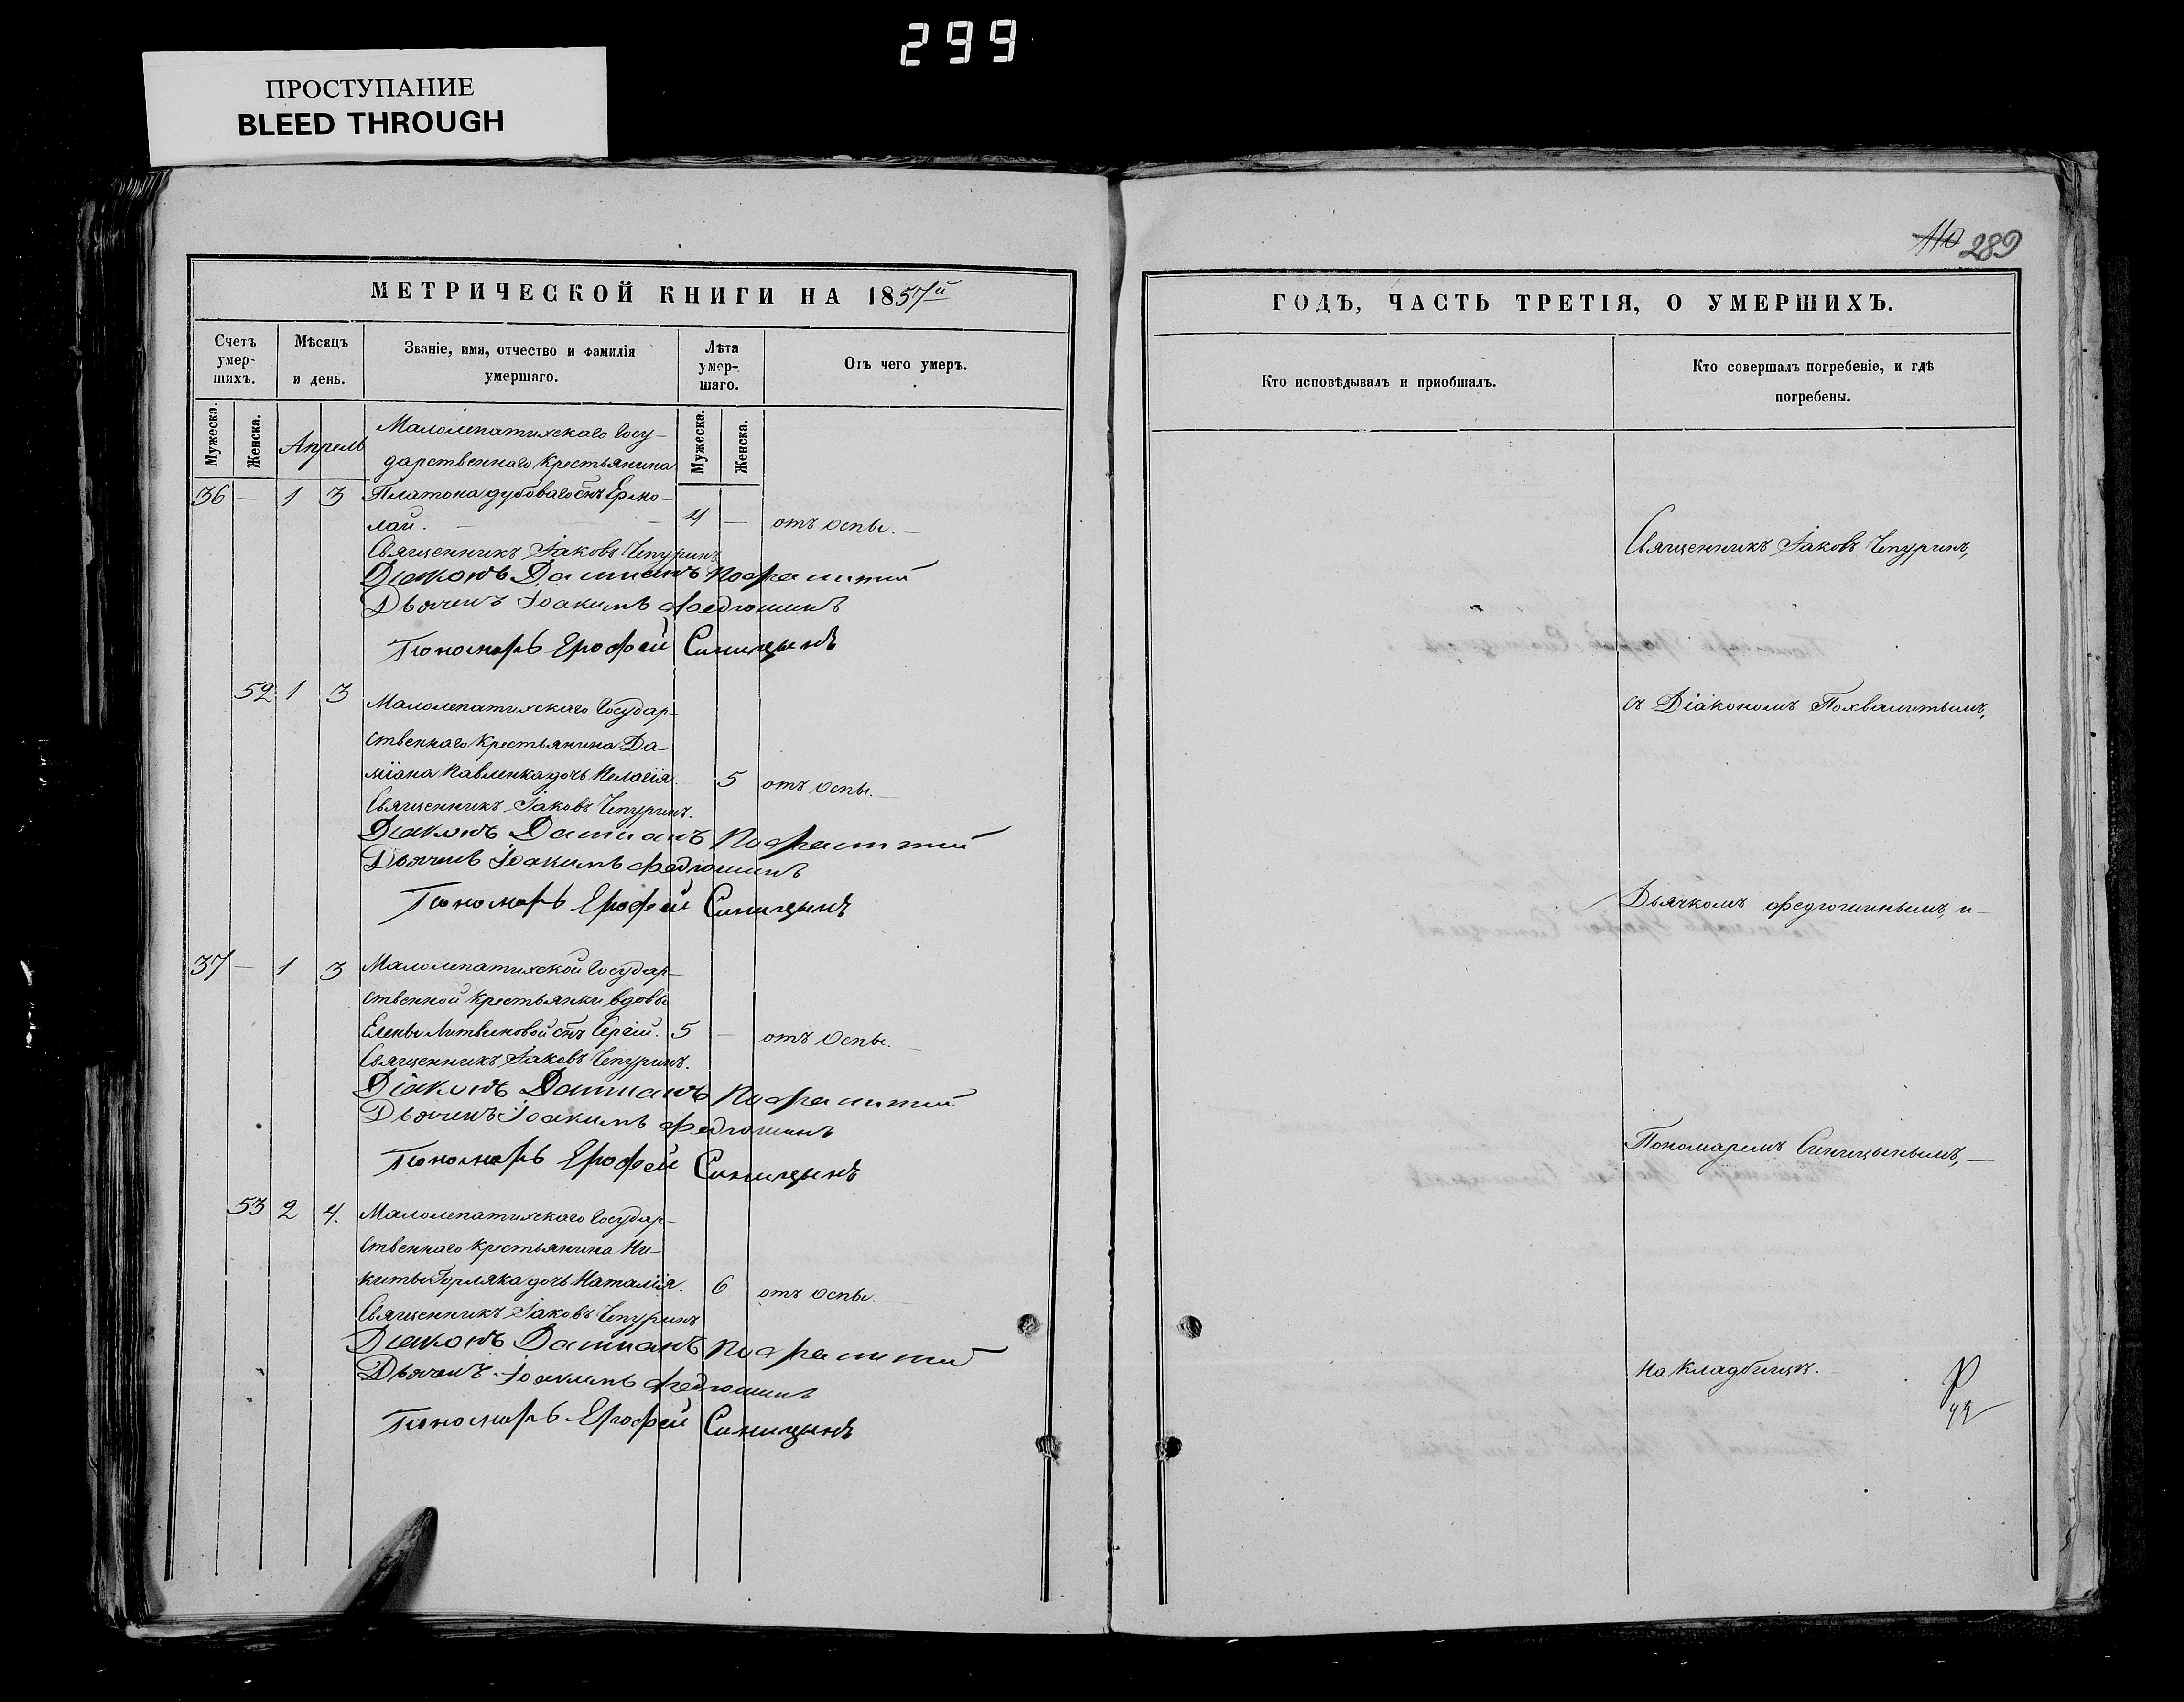 299
ПРОСТУПАНИЕ
BLEED THROUGH
МЕТРИЧЕСКОЙ КНИГИ НА 1857й
Счетъ умер-шихъ.
Мѣсяцъ и день.
Званіе, имя, отчество и фамилія умершаго.
Лѣта умер-шаго.
Отъ чего умеръ.
Мужеска.
Женска.
Апрель
Мужеска.
Женска.
Малолепатихскаго Госу-
дарственнаго Крестьянина
36 — 1 3 Платона Дубоваго снъ Ермо-
лай. — 4 — отъ оспы.
Священникъ Іаковъ Чепуринъ
Діаконъ Даміанъ
Дьячекъ Іоакимъ Федюшинъ
Пономарь Ерофей Синицынъ
52 1 3 Малолепатихскаго Государ-
ственнаго Крестьянина Да-
міана Павленка дочь Пелагія. 5 отъ оспы.
Священникъ Іаковъ Чепуринъ.
Діаконъ Даміанъ
Дьячекъ Іоакимъ Федюшинъ
Пономарь Ерофей Синицынъ
37 — 1 3 Малолепатихской Государ-
ственной Крестьянки вдовы
Елены Литвиновой снъ Сергій. 5 — отъ оспы.
Священникъ Іаковъ Чепуринъ.
Діаконъ Даміанъ
Дьячекъ Іоакимъ Федюшинъ
Пономарь Ерофей Синицынъ
53 2 4. Малолепатихскаго Государ-
ственнаго Крестьянина Ни-
киты Горляка дочь Наталія. 6 отъ оспы.
Священникъ Іаковъ Чепуринъ
Діаконъ Даміанъ
Дьячекъ Іоакимъ Федюшинъ
Пономарь Ерофей Синицынъ
110 289
ГОДЪ, ЧАСТЬ ТРЕТІЯ, О УМЕРШИХЪ.
Кто исповѣдывалъ и приобшалъ.
Кто совершалъ погребеніе, и гдѣ
погребены.
Священникъ Іаковъ Чепуринъ,
съ Діакономъ Похвалитымъ,
Дьячкомъ Федюшинымъ, и —
Пономаремъ Синицынымъ, —
на Кладбищѣ.